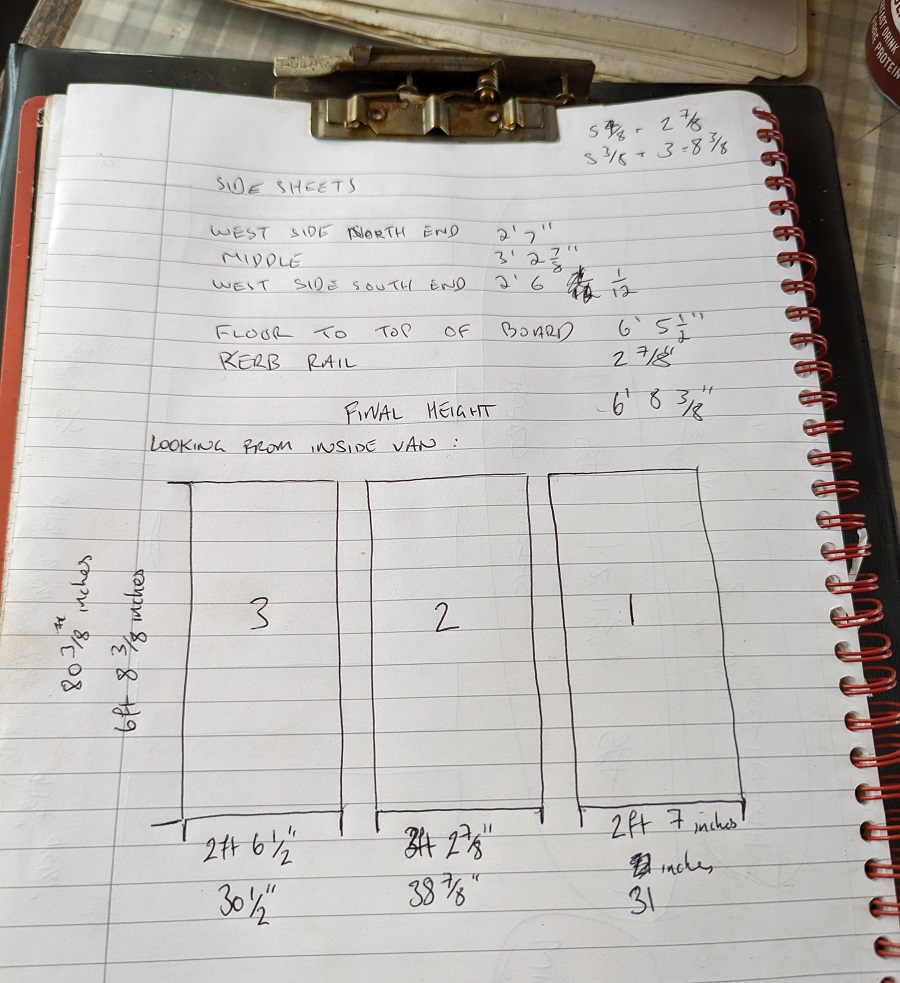 5 4/8 - 2 7/8
5 3/8 + 3 = 8 3/8
SIDE SHEETS
WEST SIDE NORTH END 2' 7"
MIDDLE 3' 2 7/8"
WEST SIDE SOUTH END 2' 6 1/12
FLOOR TO TOP OF BOARD 6' 5 1/2"
KERB RAIL 2 7/8"
FINAL HEIGHT 6' 8 3/8"
LOOKING FROM INSIDE VAN :
80 3/8 inches
6ft 8 3/8 inches
3 2 1
2ft 6 1/2" 3ft 2 7/8" 2ft 7 inches
inches
30 1/2" 38 7/8" 31
DRINK
PROTEIN